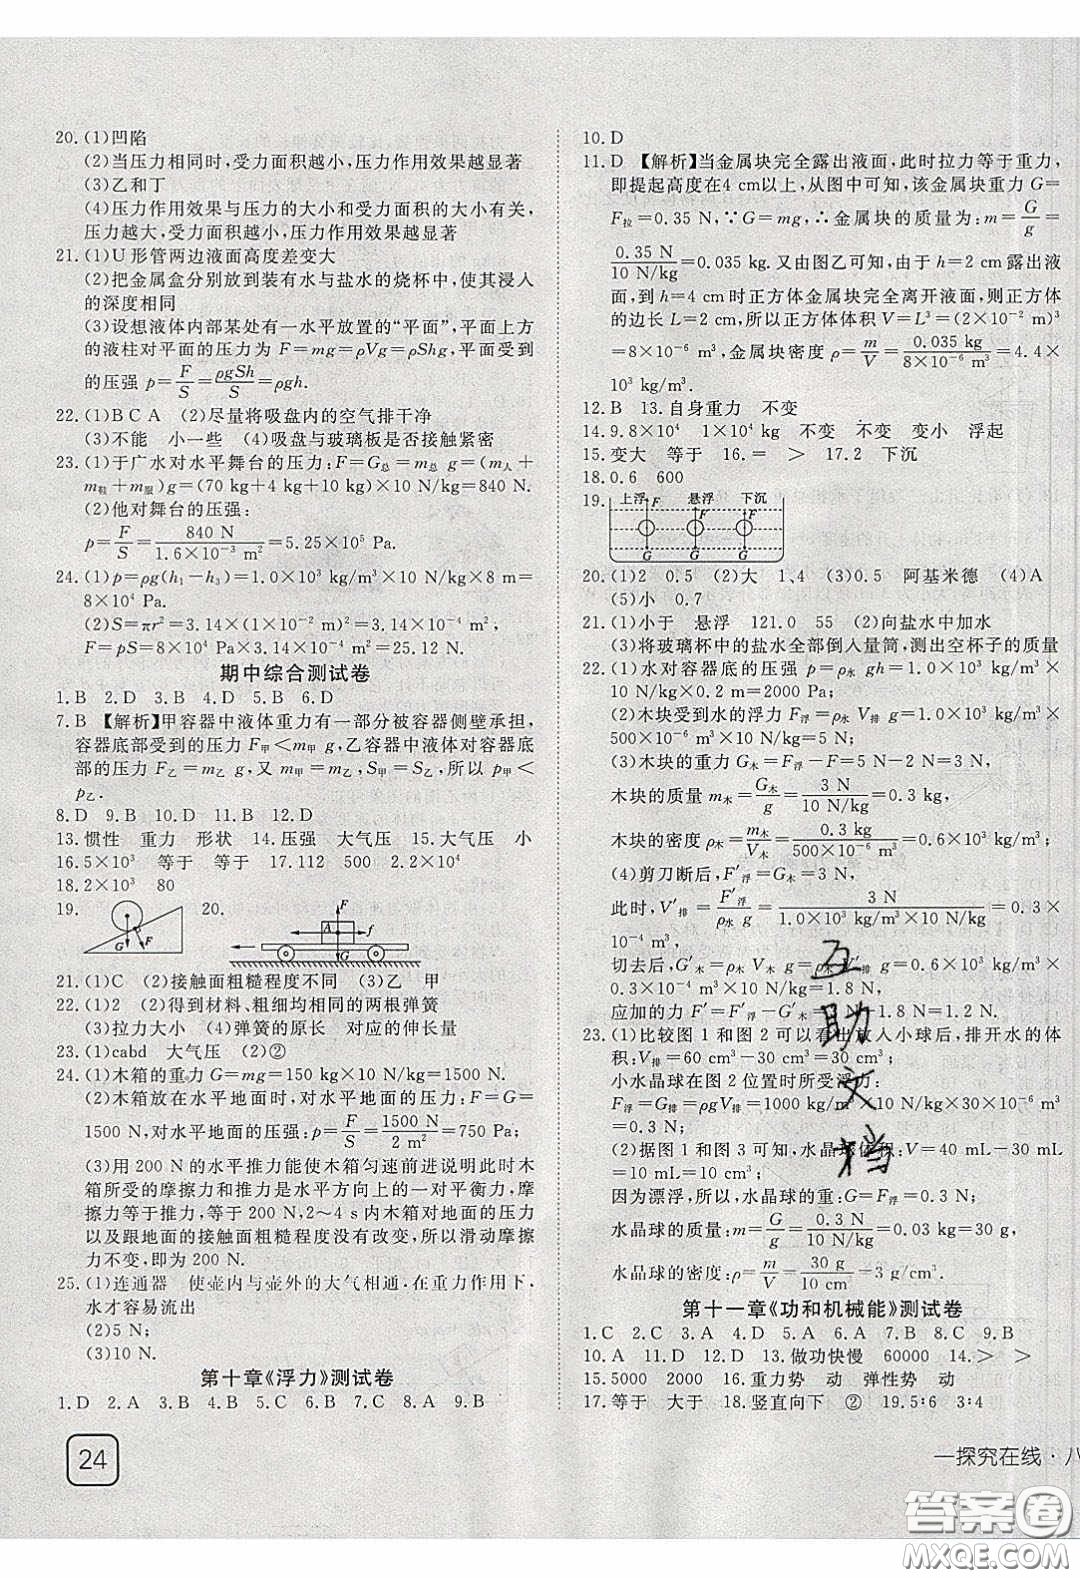 20.(1)凹陷
(2)当压力相同时,受力面积越小,压力作用效果越显著
(3)乙和丁
(4)压力作用效果与压力的大小和受力面积的大小有关,
压力越大,受力面积越小,压力作用效果越显著
21.(1)U形管两边液面高度差变大
(2)把金属盒分别放到装有水与盐水的烧杯中,使其浸入
的深度相同
(3)设想液体内部某处有一水平放置的“平面”,平面上方
的液柱对平面的压力为 F=mg=ρVg=ρShg,平面受到
的压强 p=F/S=ρgSh/S=ρgh.
22.(1)B C A (2)尽量将吸盘内的空气排干净
(3)不能 小一些 (4)吸盘与玻璃板是否接触紧密
23.(1)于广水对水平舞台的压力:F=G总=m总 g=(m人+
m鞋+m服)g=(70 kg+4 kg+10 kg)×10 N/kg=840 N.
(2)他对舞台的压强:
p=F/S=840 N/1.6×10⁻³ m²=5.25×10⁵ Pa.
24.(1)p=ρg(h₁-h₃)=1.0×10³ kg/m³×10 N/kg×8 m=
8×10⁴ Pa.
(2)S=πr²=3.14×(1×10⁻² m)²=3.14×10⁻⁴ m²,
F=pS=8×10⁴ Pa×3.14×10⁻⁴ m²=25.12 N.
期中综合测试卷
1.B 2.D 3.B 4.D 5.B 6.D
7.B 【解析】甲容器中液体重力有一部分被容器侧壁承担,
容器底部受到的压力 F甲<m甲 g,乙容器中液体对容器底
部的压力 F乙=m乙 g,又 m甲=m乙,S甲=S乙,所以 p甲<
p乙.
8.D 9.B 10.D 11.B 12.D
13.惯性 重力 形状 14.压强 大气压 15.大气压 小
16.5×10³ 等于 等于 17.112 500 2.2×10⁴
18.2×10³ 80
19. G F 20. F A f G
21.(1)C (2)接触面粗糙程度不同 (3)乙 甲
22.(1)2 (2)得到材料、粗细均相同的两根弹簧
(3)拉力大小 (4)弹簧的原长 对应的伸长量
23.(1)cabd 大气压 (2)②
24.(1)木箱的重力 G=mg=150 kg×10 N/kg=1500 N.
(2)木箱放在水平地面时,对水平地面的压力:F=G=
1500 N,对水平地面的压强:p=F/S=1500 N/2 m²=750 Pa;
(3)用 200 N 的水平推力能使木箱匀速前进说明此时木
箱所受的摩擦力和推力是水平方向上的一对平衡力,摩
擦力等于推力,等于 200 N,2~4 s内木箱对地面的压力
以及跟地面的接触面粗糙程度没有改变,所以滑动摩擦
力不变,即为 200 N.
25.(1)连通器 使壶内与壶外的大气相通,在重力作用下,
水才容易流出
(2)5 N;
(3)10 N.
第十章《浮力》测试卷
1.D 2.A 3.B 4.B 5.C 6.B 7.B 8.C 9.B
24
10.D
11.D 【解析】当金属块完全露出液面,此时拉力等于重力,
即提起高度在4 cm以上,从图中可知,该金属块重力 G=
F拉=0.35 N,∵G=mg,∴金属块的质量为:m=G/g=
0.35 N/10 N/kg=0.035 kg.又由图乙可知,由于 h=2 cm 露出液
面,到 h=4 cm 时正方体金属块完全离开液面,则正方体
的边长 L=2 cm,所以正方体体积 V=L³=(2×10⁻² m)³
=8×10⁻⁶ m³,金属块密度 ρ=m/V=0.035 kg/8×10⁻⁶ m³=4.4×
10³ kg/m³.
12.B 13.自身重力 不变
14.9.8×10⁴ 1×10⁴ kg 不变 不变 变小 浮起
15.变大 等于 16.= > 17.2 下沉
18.0.6 600
19. 上浮 F 悬浮 F 下沉 F G G G
20.(1)2 0.5 (2)大 1、4 (3)0.5 阿基米德 (4)A
(5)小 0.7
21.(1)小于 悬浮 121.0 55 (2)向盐水中加水
(3)将玻璃杯中的盐水全部倒入量筒,测出空杯子的质量
22.(1)水对容器底的压强 p=ρ水 gh=1.0×10³ kg/m³×
10 N/kg×0.2 m=2000 Pa;
(2)木块受到水的浮力 F浮=ρ水 V排 g=1.0×10³ kg/m³×
500×10⁻⁶ m³×10 N/kg=5 N;
(3)木块的重力 G木=F浮-F=5 N-2 N=3 N,
木块的质量 m木=G木/g=3 N/10 N/kg=0.3 kg,
木块的密度 ρ木=m木/V木=0.3 kg/500×10⁻⁶ m³=0.6×10³ kg/m³;
(4)剪刀断后,F′浮=G木=3 N,
此时,V′排=F′浮/ρ水 g=3 N/1.0×10³ kg/m³×10 N/kg=0.3×
10⁻⁴ m³,
切去后,G′木=ρ木 V木 g=ρ木 V′排 g=0.6×10³ kg/m³×
0.3×10⁻⁴ m³×10 N/kg=1.8 N,
应加的力 F′=F′浮-G′木=3 N-1.8 N=1.2 N.
23.(1)比较图 1 和图 2 可以看出放入小球后,排开水的体
积:V排=60 cm³-30 cm³=30 cm³;
小水晶球在图 2 位置时所受浮力:
F浮=G排=ρgV排=1000 kg/m³×10 N/kg×30×10⁻⁶ m³
=0.3 N;
(2)据图 1 和图 3 可知,水晶球体积:V=40 mL-30 mL
=10 mL=10 cm³;
因为漂浮,所以,水晶球的重:G=F浮=0.3 N,
水晶球的质量:m=G/g=0.3 N/10 N/kg=0.03 kg=30 g,
水晶球的密度:ρ=m/V=30 g/10 cm³=3 g/cm³.
第十一章《功和机械能》测试卷
1.C 2.C 3.A 4.D 5.A 6.A 7.B 8.C 9.B
10.A 11.D 12.D 13.做功快慢 60000 14.> >
15.5000 2000 16.重力势 动 弹性势 动
17.等于 大于 18.竖直向下 ② 19.5∶6 3∶4
一探究在线·八
互
助
文
档
答案卷
MXQE.COM